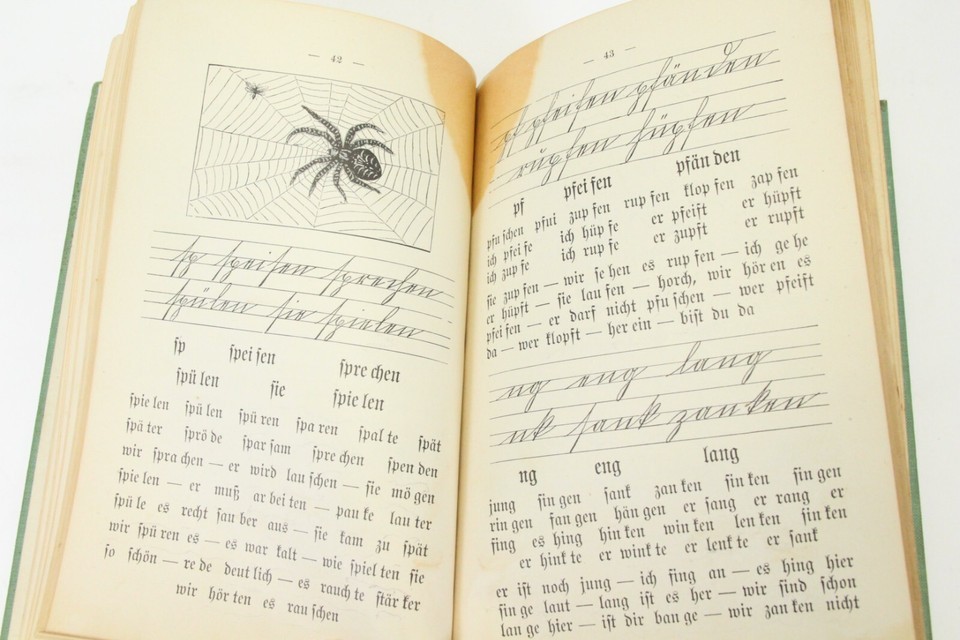 — 42 —
sp speisen sprechen
spülen sie spielen
sp spei sen spre chen
spü len sie spie len
spie len spü len spü ren spa ren spal te spät
spä ter sprö de spar sam spre chen spen den
wir spra chen — er wird lau schen — sie mö gen
spie len — er muß ar bei ten — pau ke lau ter
spü le es recht sau ber aus — sie kam zu spät
wir spü ren es — es war kalt — wie spiel ten sie
so schön — re de deut lich — es rauch te stär ker
wir hör ten es rau schen
— 43 —
pf pfeifen pfänden
rupfen hüpfen
pf pfei fen pfän den
pfu schen pfui zup fen rup fen klop fen zap fen
ich pfei fe ich hüp fe er pfeift er hüpft
ich zup fe ich rup fe er zupft er rupft
sie zup fen — wir se hen es rup fen — ich ge he
er hüpft — sie lau fen — horch, wir hör en es
pfei fen — er darf nicht pfu schen — wer pfeift
da — wer klopft — her ein — bist du da
ng eng lang
nk sank zanken
ng eng lang
jung sin gen sank zan ken sin ken sin gen
rin gen fan gen hän gen er sang er rang er
sing es hing hin ken win ken len ken sin ken
er hink te er wink te er lenk te er sank
er ist noch jung — ich sing an — es hing hier
sin ge laut — lang ist es her — wir sind schon
lan ge hier — ist dir ban ge — wir zan ken nicht